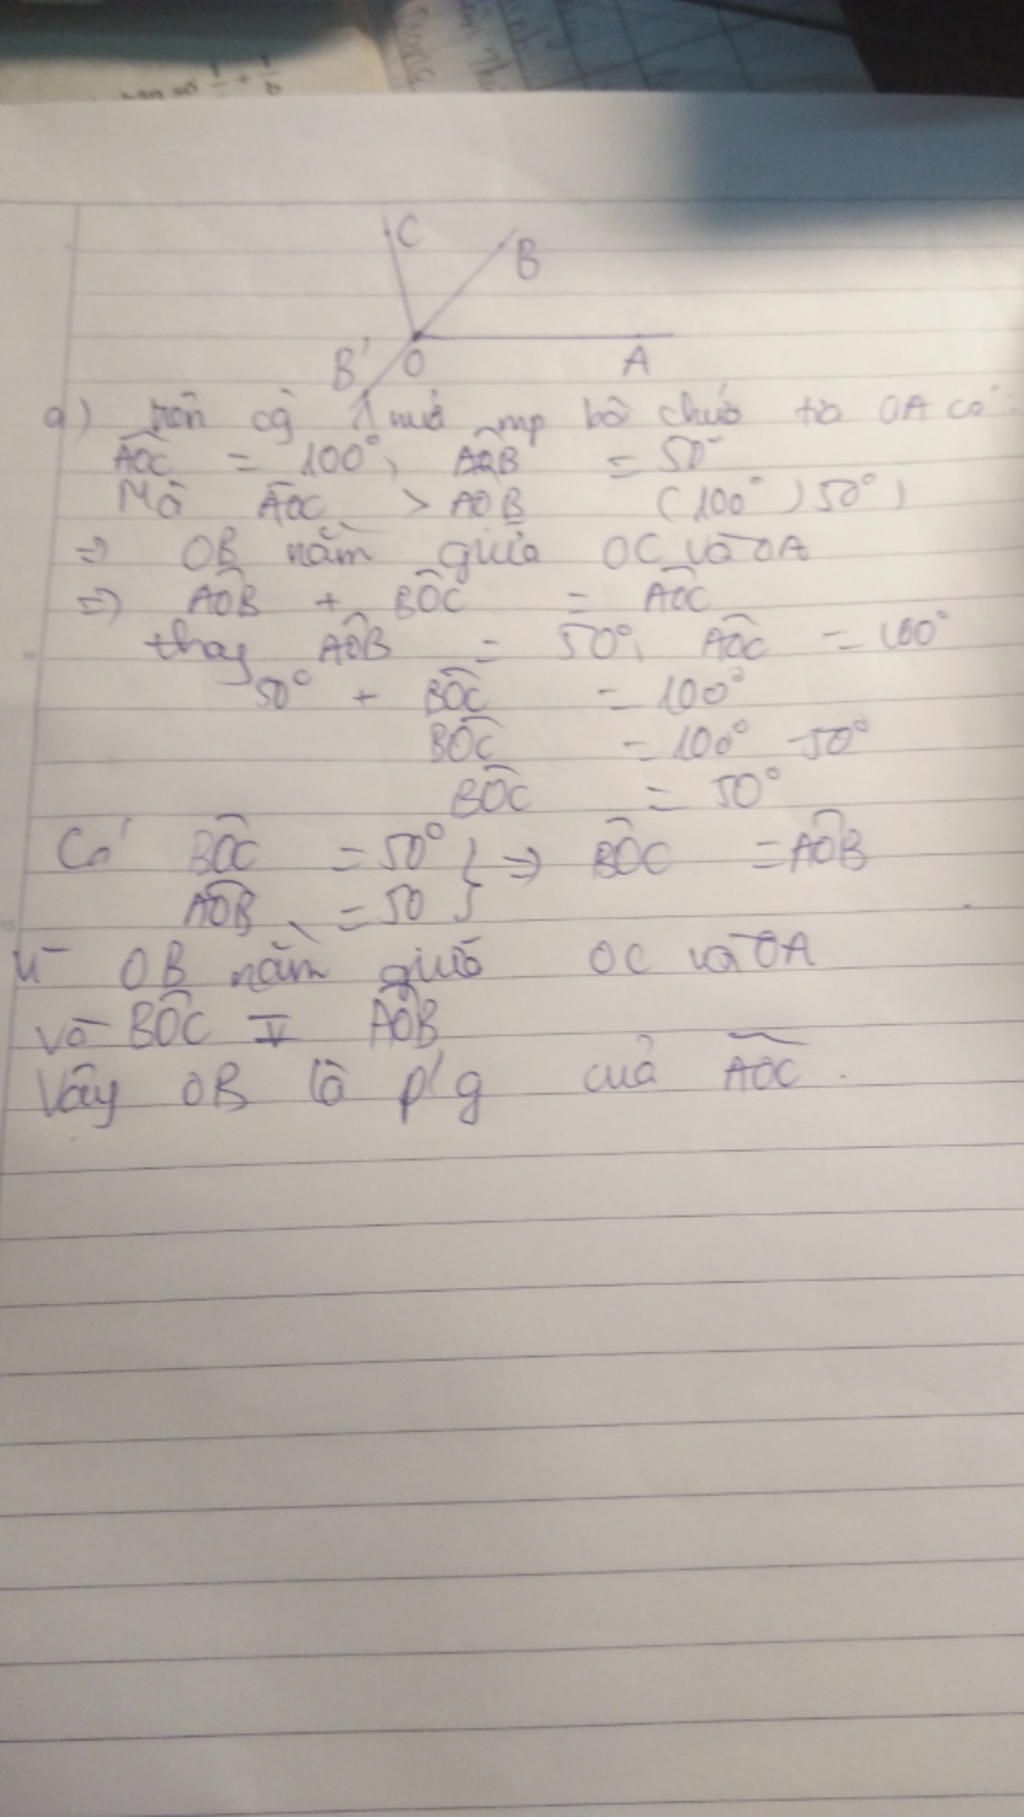 C
B
B' O A
a) trên cg 1 nửa mp bờ chứa tia OA có:
AOC = 100°, AOB = 50°
Mà AOC > AOB (100° > 50°)
=> OB nằm giữa OC và OA
=> AOB + BOC = AOC
thay AOB = 50°, AOC = 100°
50° + BOC = 100°
BOC = 100° - 50°
BOC = 50°
Có BOC = 50° } => BOC = AOB
AOB = 50 }
OB nằm giữa OC và OA
và BOC = AOB
Vậy OB là p/g của AOC.